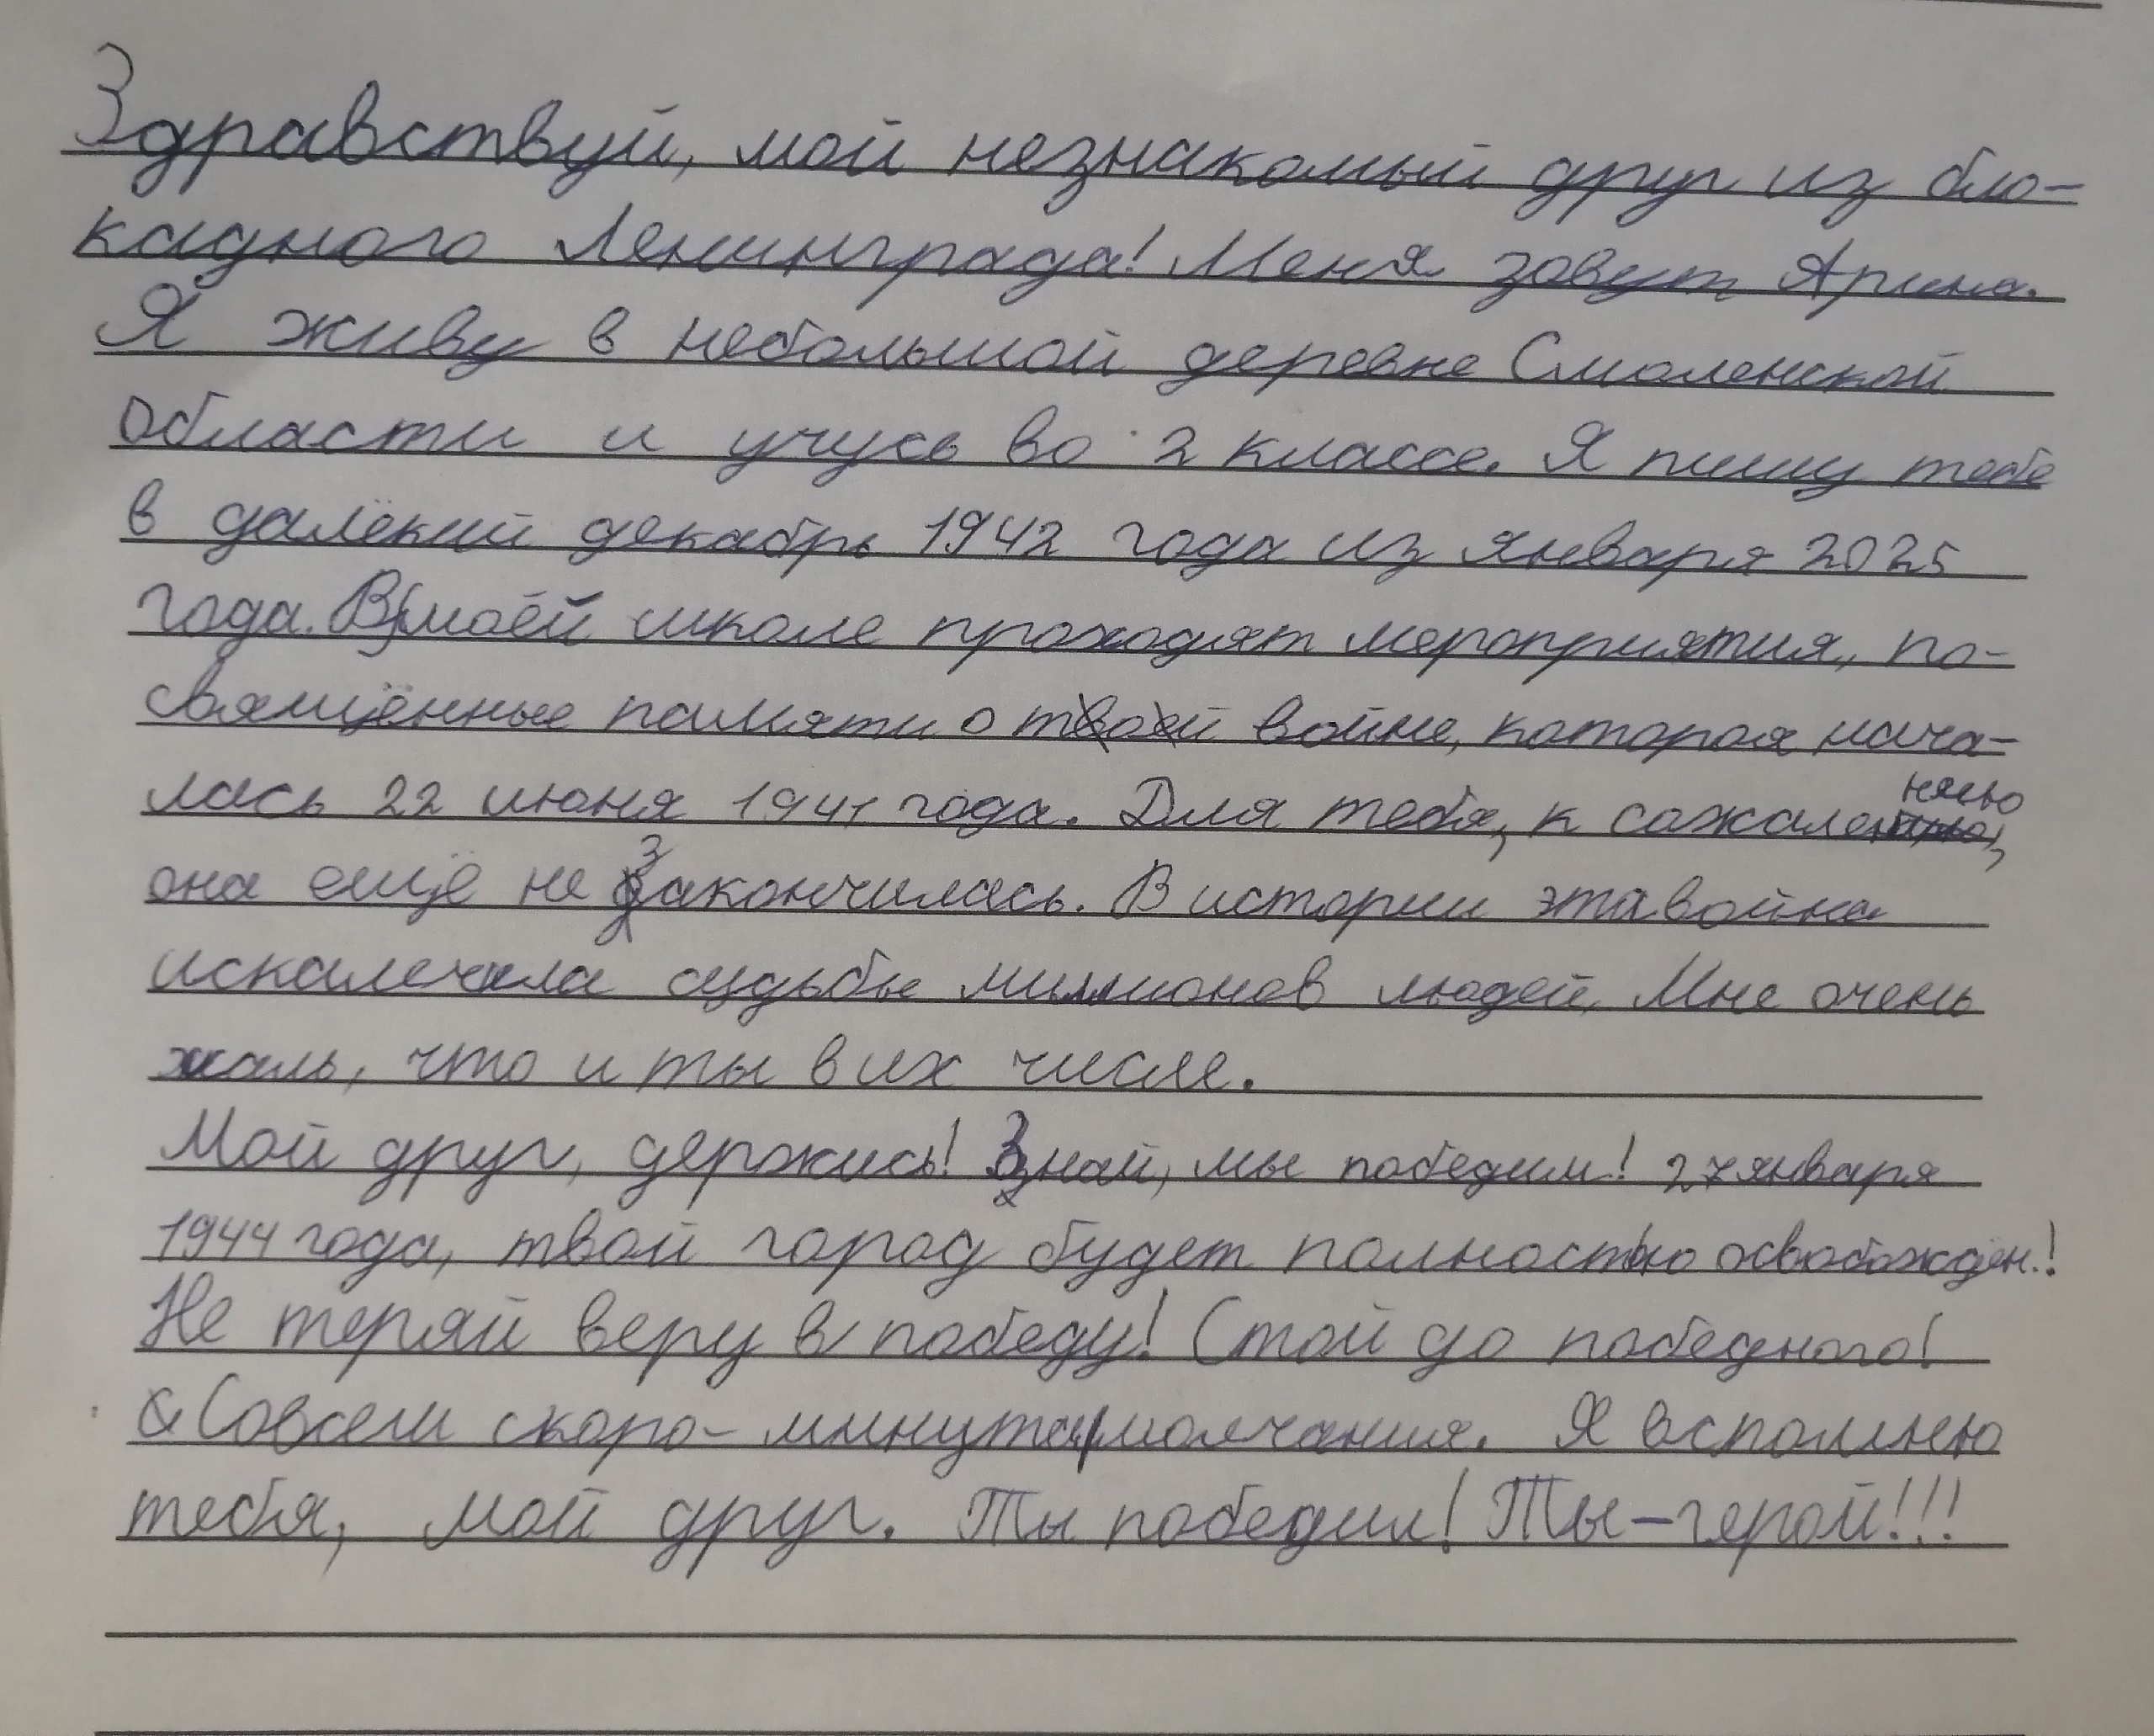 Здравствуй, мой незнакомый друг из бло-
кадного Ленинграда! Меня зовут Арина.
Я живу в небольшой деревне Смоленской
области и учусь во 2 классе. Я пишу тебе
в далёкий декабрь 1942 года из января 2025
года. В моей школе проходят мероприятия, по-
свящённые памяти о твоей войне, которая нача-
лась 22 июня 1941 года. Для тебя, к сожалению,
она ещё не закончилась. В истории эта война
искалечила судьбы миллионов людей. Мне очень
жаль, что и ты в их числе.
Мой друг, держись! Знай, мы победим! 27 января
1944 года, твой город будет полностью освобождён!
Не теряй веру в победу! Стой до победного!
Совсем скоро - минута молчания. Я вспомню
тебя, мой друг. Ты победил! Ты - герой!!!